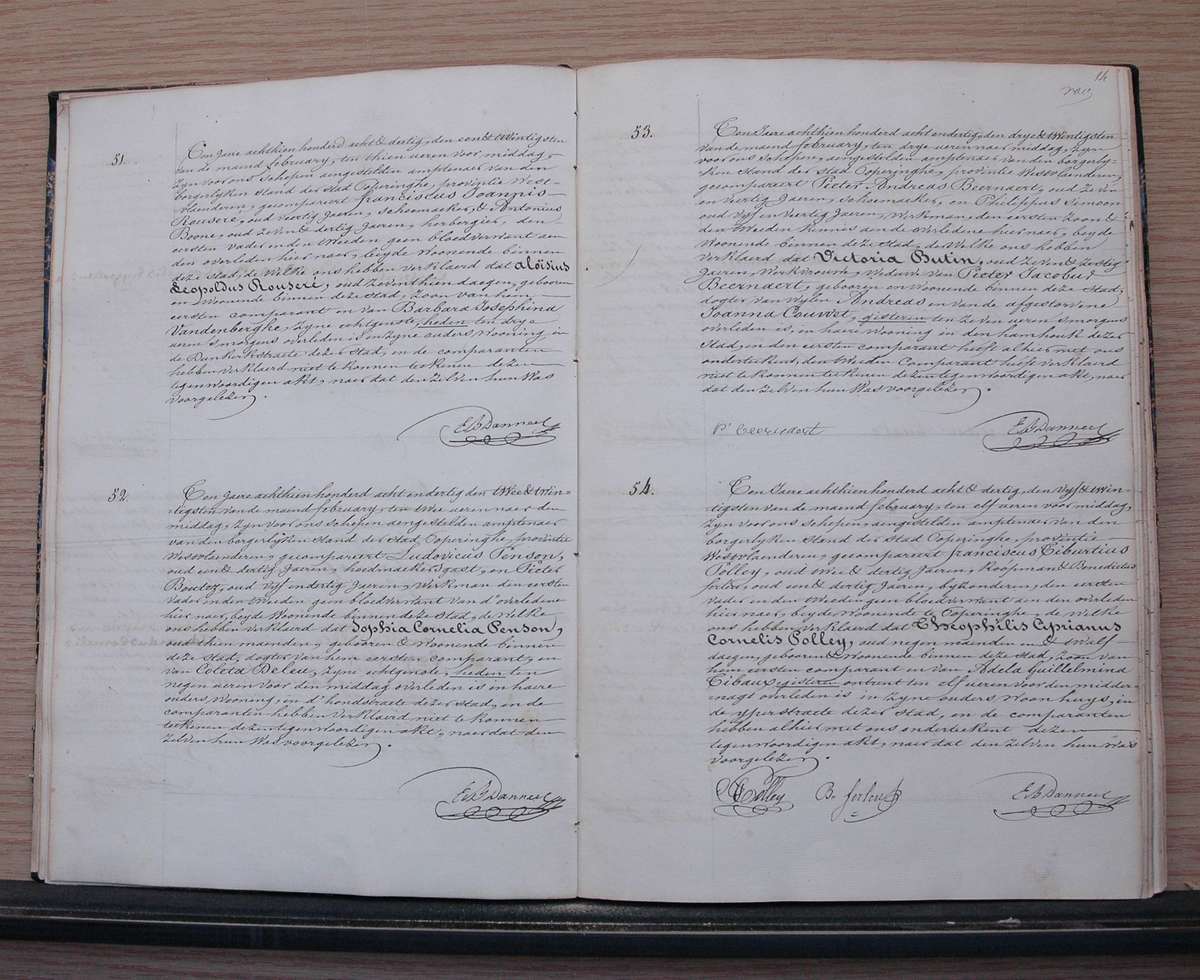 51.
Ten Jaere achthien honderd acht & dertig, den een & twintigsten
van de maend february, ten thien ueren voor middag,
zyn voor ons schepen aengestelden amptenaer van den
borgerlyken stand der stad Poperinghe, provintie West-
vlaenderen, gecompareert franciscus Joannis
Rouseré, oud veertig Jaeren, schoemaeker, & Antonius
Boone, oud zeven & dertig Jaeren, herbergier, den
eersten vader en den tweeden geen bloedverwant aen
den overleden hier naer, beyde woonende binnen
deze stad, de welke ons hebben verklaerd dat Aloïsius
Leopoldus Rouseré, oud zeventhien daegen, gebooren
en woonende binnen deze stad, zoon van hem
eersten comparant en van Barbara Josephina
Vandenberghe, zyne echtgenote, heden ten drye
ueren smorgens overleden is in zyne ouders wooning in
de Dunkerkstraete dezer stad, en de comparanten
hebben verklaerd niet te konnen teekenen dezen
tegenwoordigen akt, naer dat den zelven hun was
voorgelezen.
E. B. Danneel
52.
Ten Jaere achthien honderd acht en dertig den twee & twin-
tigsten van de maend february, ten twee ueren naer den
middag, zyn voor ons schepen aengestelden amptenaer
van den borgerlyken stand der stad Poperinghe, provintie
Westvlaenderen, gecompareert Ludovicus Penson,
oud een & dertig Jaeren, hoedemaekersgast, en Pieter
Boutez, oud vyf en dertig Jaeren, werkman den eersten
vader en den tweeden geen bloedverwant van d'overledene
hier naer, beyde woonende binnen deze stad, de welke
ons hebben verklaerd dat Sophia Cornelia Penson,
oud thien maenden, gebooren & woonende binnen
deze stad, dogter van hem eersten comparant, en
van Coleta Beleu, zyne echtgenote, heden ten
negen ueren voor den middag overleden is in haere
ouders wooning, in d'hondstraete dezer stad, en de
comparanten hebben verklaerd niet te konnen
teekenen dezen tegenwoordigen akt, naer dat den
zelven hun was voorgelezen.
E. B. Danneel
14
53.
Ten Jaere achthien honderd acht en dertig, den drye & twintigsten
van de maend february, ten drye ueren naer middag, zyn
voor ons schepen, aengestelden amptenaer van den borgerly-
ken stand der stad Poperinghe, provintie Westvlaenderen,
gecompareert Pieter Andreas Beernaert, oud zeven
en veertig Jaeren, schoemaeker, en Philippus Simoen
oud vyf en veertig Jaeren, werkman, den eersten zoon &
den tweeden kennis aen de overledene hier naer, beyde
woonende binnen deze stad, de welke ons hebben
verklaerd dat Victoria Butin, oud zeven & zestig
Jaeren, werkvrouw, weduwe van Pieter Jacobus
Beernaert, gebooren en woonende binnen deze stad,
dogter van wylen Andreas en van de afgestorvene
Joanna Cauwet, gisteren ten zeven ueren smorgens
overleden is, en haere wooning in den hanhoukt dezer
stad, en den eersten comparant heeft alhier met ons
onderteekent, den tweeden comparant heeft verklaerd
niet te konnen teekenen dezen tegenwoordigen akt, naer
dat den zelven hun was voorgelezen.
P. Beernaert
E. B. Danneel
54.
Ten Jaere achthien honderd acht & dertig, den vyf & twin-
tigsten van de maend february, ten elf ueren voor middag,
zyn voor ons schepen aengestelden amptenaer van den
borgerlyken stand der stad Poperinghe, provintie
Westvlaenderen, gecompareert franciscus Tiburtius
Polley, oud twee & dertig Jaeren, koopman & Benedictus
oud een & dertig Jaeren, byzonderen, den eersten
vader en den tweeden geen bloedverwant aen den overleden
hier naer, beyde woonende te Poperinghe, de welke
ons hebben verklaerd dat Théophilis Ciprianus
Cornelis Polley, oud negen maenden & twalf
daegen, gebooren & woonende binnen deze stad, zoon van
hem eersten comparant en van Adela Guillelmina
Tibaux, gisteren ontrent ten elf ueren voor den midder-
nagt overleden is in zyne ouders woon huys, in
de yperstraete dezer stad, en de comparanten
hebben alhier met ons onderteekent dezen
tegenwoordigen akt, naer dat den zelven hun was
voorgelezen.
Polley
E. B. Danneel